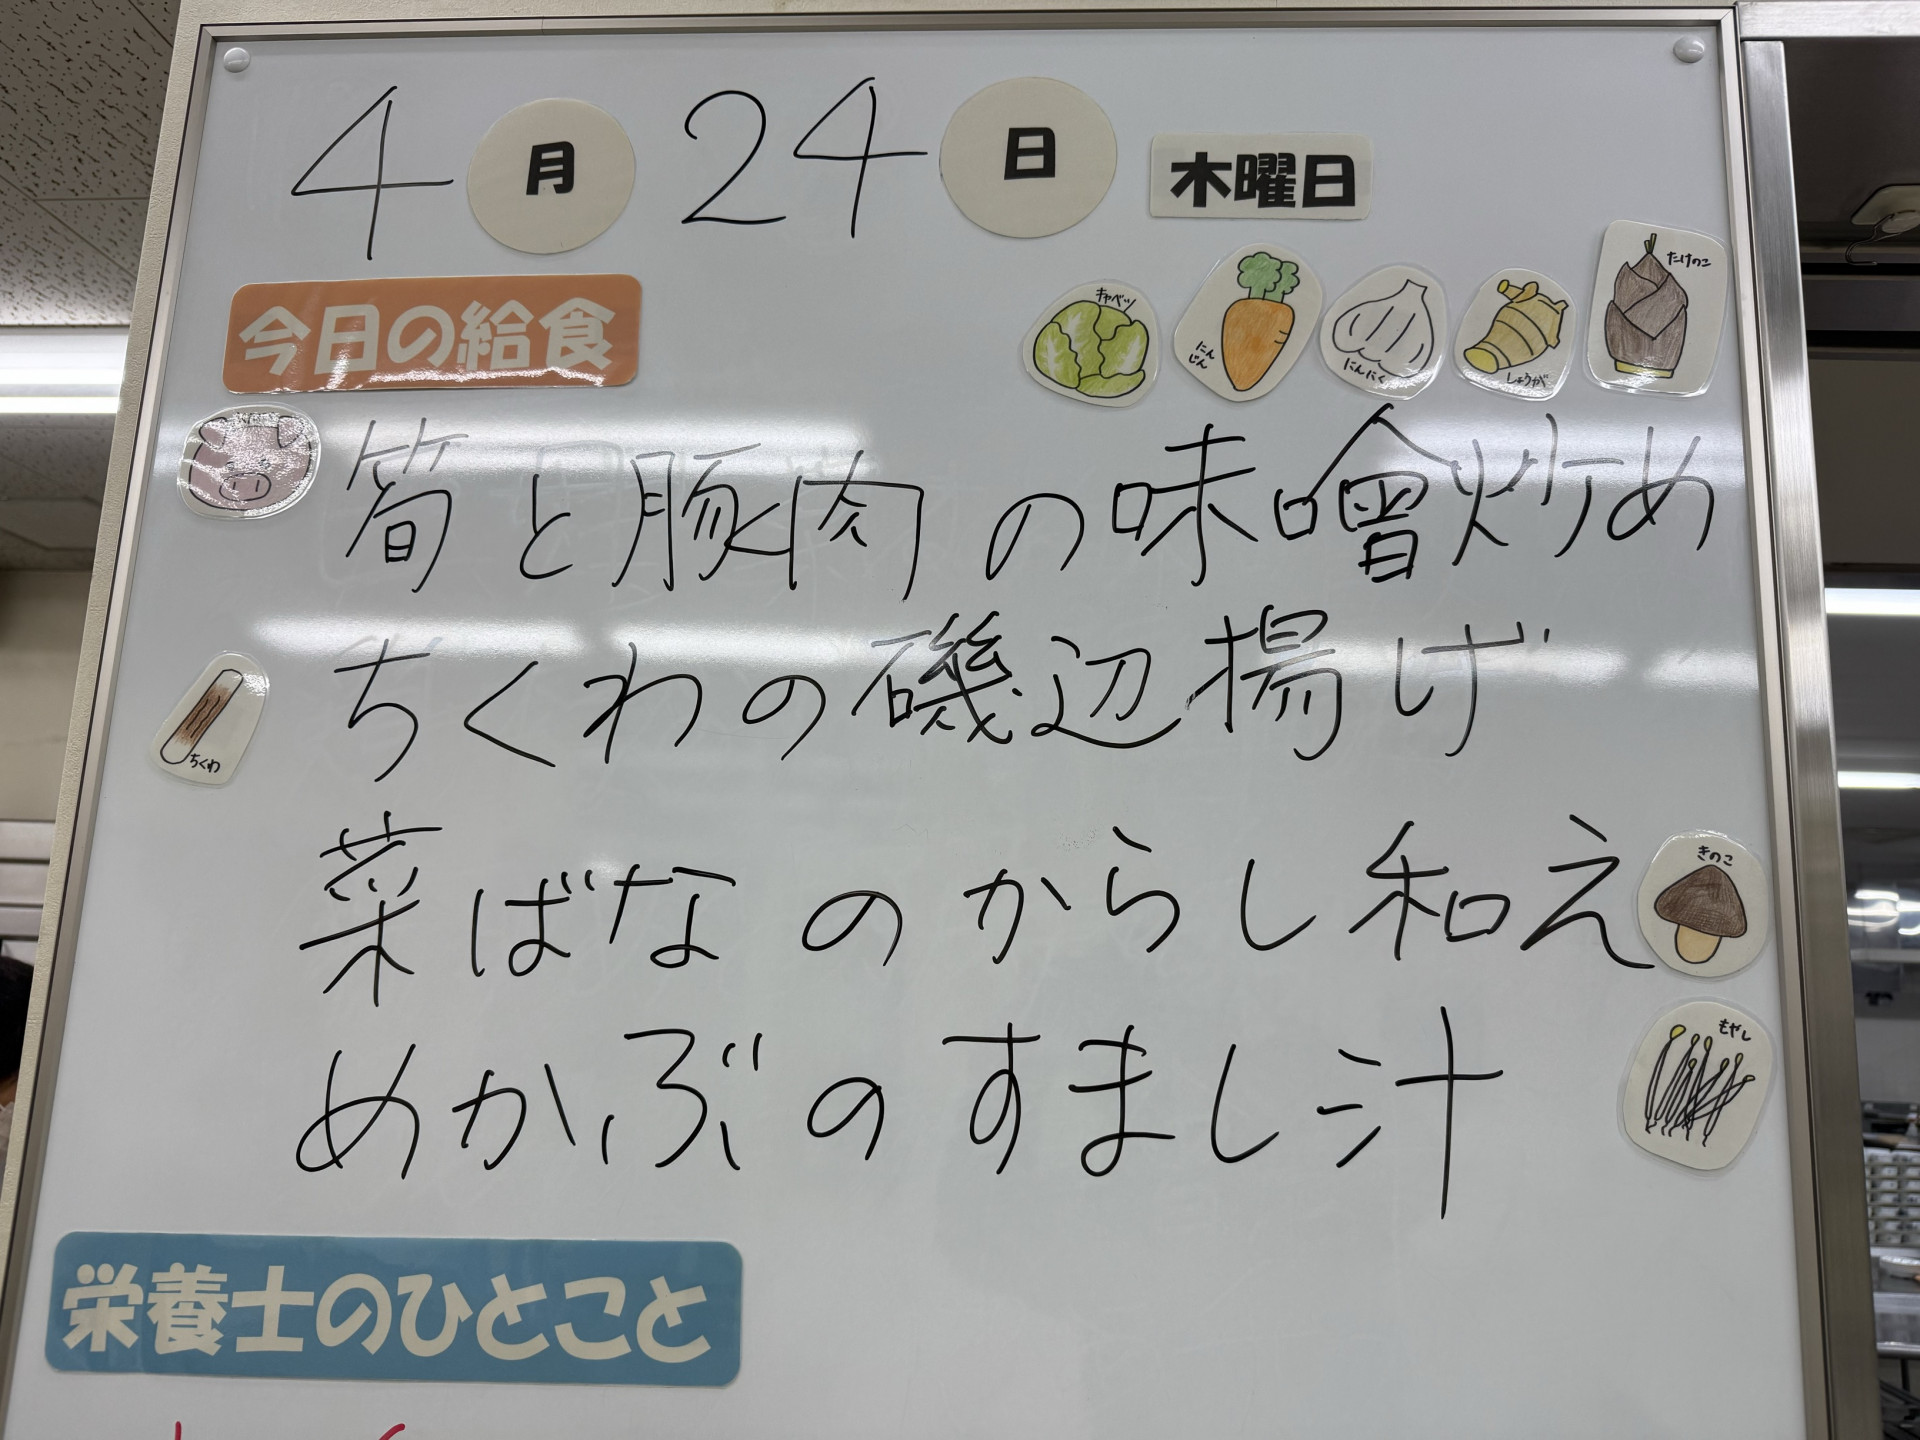 4月24日 木曜日
今日の給食
キャベツ
にんじん
にんにく
しょうが
たけのこ
筍と豚肉の味噌炒め
ちくわの磯辺揚げ
ちくわ
菜ばなのからし和え
きのこ
めかぶのすまし汁
もやし
栄養士のひとこと